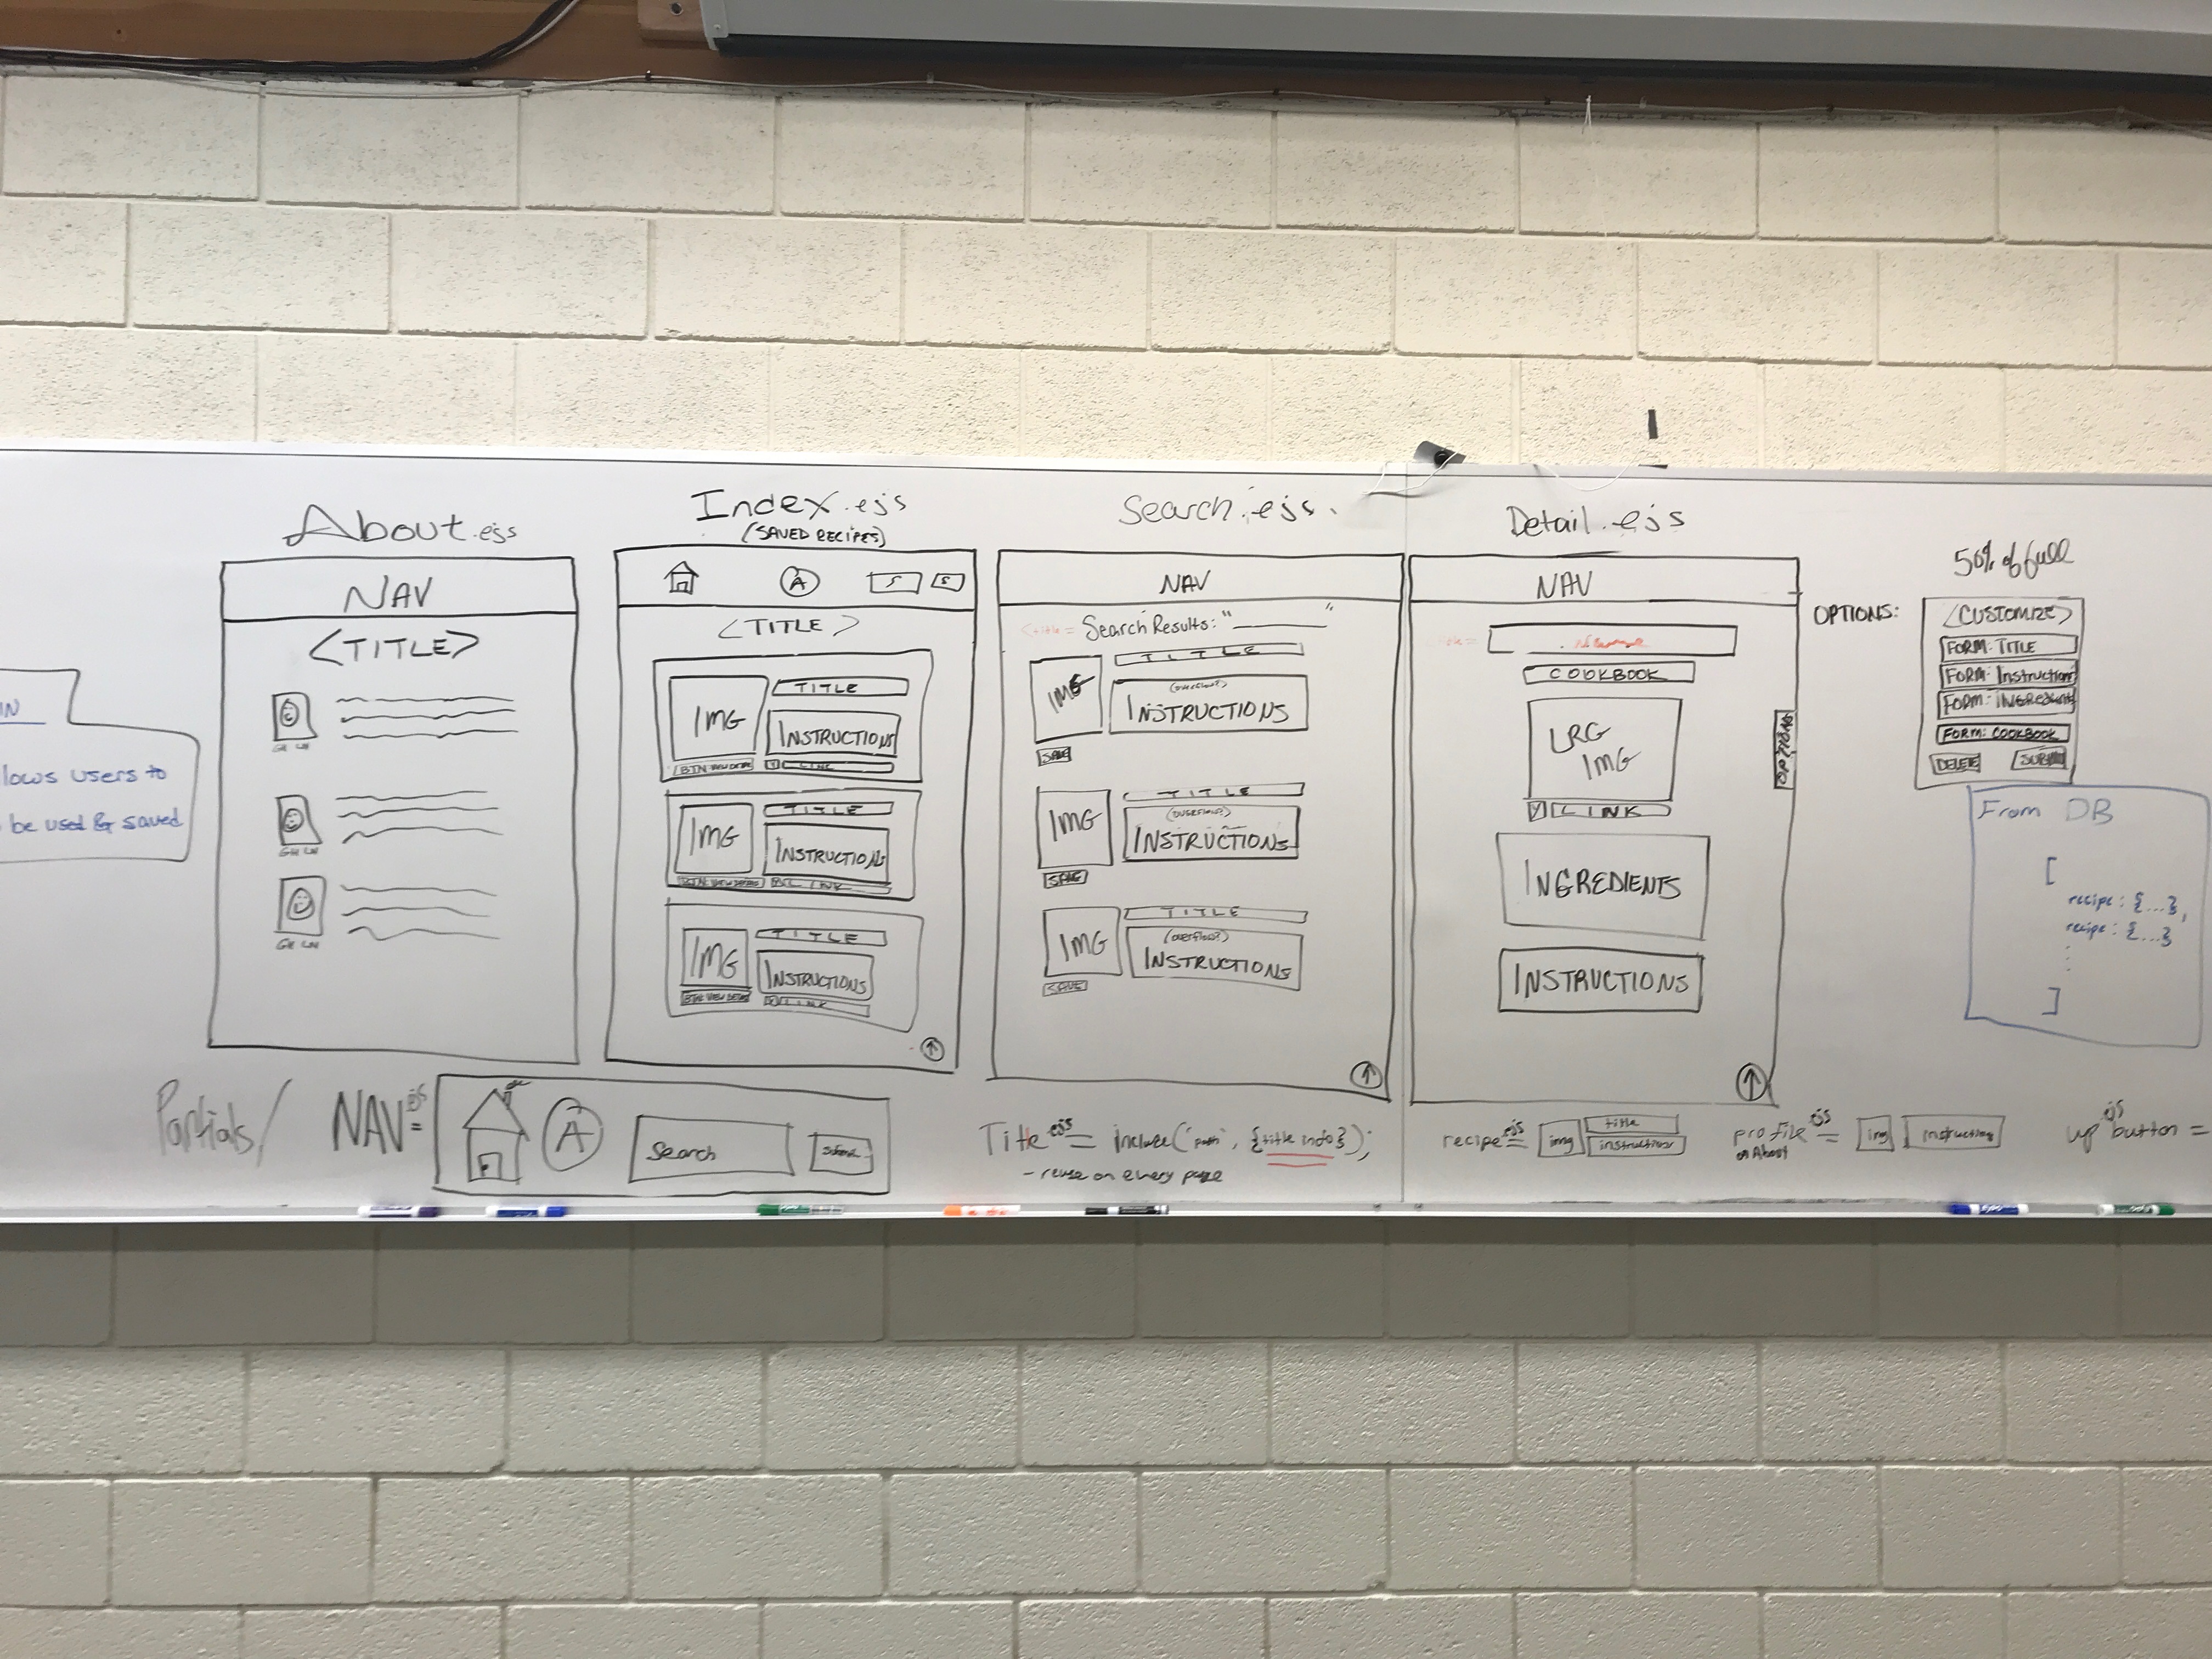 About.ejs
NAV
<TITLE>
GH LN
GH LN
GH LN
IN
lows users to
be used & saved
Index.ejs
(SAVED RECIPES)
A
S
S
<TITLE>
IMG
TITLE
INSTRUCTIONS
BTN: VIEW DETAILS
Y LINK
IMG
TITLE
INSTRUCTIONS
BTN: VIEW DETAILS
LINK
IMG
TITLE
INSTRUCTIONS
BTN: VIEW DETAILS
LINK
Search.ejs.
NAV
<title = Search Results: "________"
IMG
TITLE
(overflow?)
INSTRUCTIONS
SAVE
IMG
TITLE
(overflow?)
INSTRUCTIONS
SAVE
IMG
TITLE
(overflow?)
INSTRUCTIONS
SAVE
Detail.ejs
NAV
COOKBOOK
LRG
IMG
Y LINK
INGREDIENTS
INSTRUCTIONS
OPTIONS:
50% of full
<CUSTOMIZE>
FORM: TITLE
FORM: Instruction
FORM: INGREDIENTS
FORM: COOKBOOK
DELETE
SUBMIT
From DB
[
recipe: {...},
recipe: {...}
]
Partials/
NAV.ejs =
A
Search
Submit
Title.ejs = include('path', {title info});
- reuse on every page
recipe.ejs =
img
title
instructions
profile.ejs =
on About
img
instructions
up button.ejs =